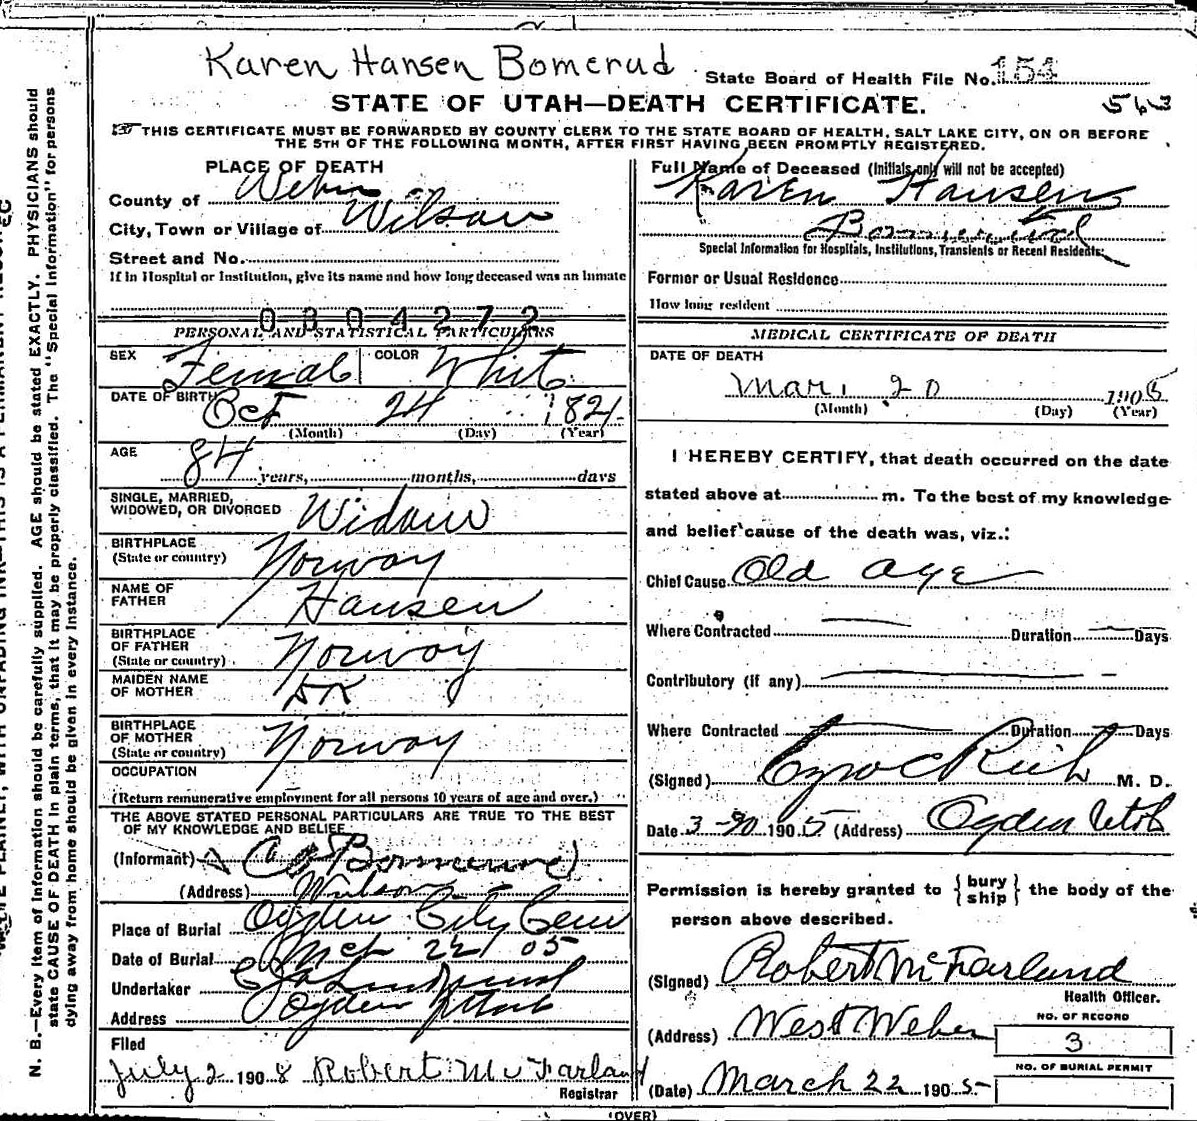 Karen Hansen Bomerud
State Board of Health File No. 154
STATE OF UTAH—DEATH CERTIFICATE.
543
THIS CERTIFICATE MUST BE FORWARDED BY COUNTY CLERK TO THE STATE BOARD OF HEALTH, SALT LAKE CITY, ON OR BEFORE
THE 5TH OF THE FOLLOWING MONTH, AFTER FIRST HAVING BEEN PROMPTLY REGISTERED.
PLACE OF DEATH
County of Weber
City, Town or Village of Wilson
Street and No.
If in Hospital or Institution, give its name and how long deceased was an inmate
0304272
PERSONAL AND STATISTICAL PARTICULARS
SEX Female COLOR White
DATE OF BIRTH Oct 24 1821
(Month) (Day) (Year)
AGE
84 years, months, days
SINGLE, MARRIED,
WIDOWED, OR DIVORCED Widow
BIRTHPLACE
(State or country) Norway
NAME OF
FATHER Hansen
BIRTHPLACE
OF FATHER
(State or country) Norway
MAIDEN NAME
OF MOTHER DK
BIRTHPLACE
OF MOTHER
(State or country) Norway
OCCUPATION
(Return remunerative employment for all persons 10 years of age and over.)
THE ABOVE STATED PERSONAL PARTICULARS ARE TRUE TO THE BEST
OF MY KNOWLEDGE AND BELIEF
(Informant)
(Address) Wilson
Place of Burial Ogden City Cem
Date of Burial 22 05
Undertaker
Address Ogden Utah
Filed
July 2 1908 Robert McFarland
Registrar
Full Name of Deceased (Initials only will not be accepted)
Karen Hansen
Bomerud
Special Information for Hospitals, Institutions, Transients or Recent Residents:
Former or Usual Residence
How long resident
MEDICAL CERTIFICATE OF DEATH
DATE OF DEATH
Mar. 20 1905
(Month) (Day) (Year)
I HEREBY CERTIFY, that death occurred on the date
stated above at m. To the best of my knowledge
and belief cause of the death was, viz.:
Chief Cause Old age
Where Contracted Duration Days
Contributory (if any)
Where Contracted Duration Days
(Signed) Rich M. D.
Date 3-20 1905 (Address) Ogden Utah
Permission is hereby granted to {bury ship} the body of the
person above described.
(Signed) Robert McFarland
Health Officer.
(Address) West Weber
NO. OF RECORD
3
NO. OF BURIAL PERMIT
(Date) March 22 1905
(OVER)
N. B.—Every item of information should be carefully supplied. AGE should be stated EXACTLY. PHYSICIANS should
state CAUSE OF DEATH in plain terms, that it may be properly classified. The "Special Information" for persons
dying away from home should be given in every instance.